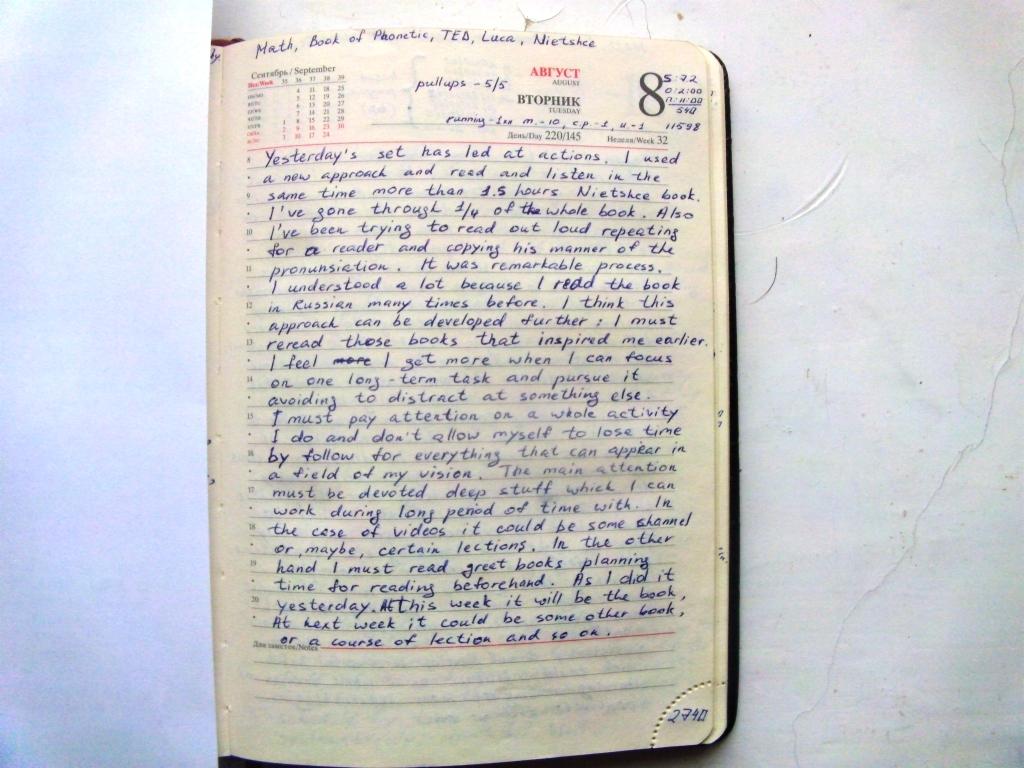 Math, Book of Phonetic, TED, Luca, Nietshce
Сентябрь / September
Нед/Week 35 36 37 38 39
4 11 18 25
5 12 19 26
6 13 20 27
7 14 21 28
1 8 15 22 29
2 9 16 23 30
3 10 17 24
pullups - 5/5
АВГУСТ
AUGUST
ВТОРНИК
TUESDAY
8
5:72
0:2:00
540
11598
running - 1км m.-10, c.p.-1, u.-1
День/Day 220/145
Неделя/Week 32
8 Yesterday's set has led at actions. I used
a new approach and read and listen in the
9 same time more than 1.5 hours Nietshce book.
I've gone through 1/4 of the whole book. Also
10 I've been trying to read out loud repeating
for a reader and copying his manner of the
11 pronunsiation. It was remarkable process.
I understood a lot because I read the book
12 in Russian many times before. I think this
approach can be developed further: I must
13 reread those books that inspired me earlier.
I feel more I get more when I can focus
14 on one long-term task and pursue it
avoiding to distract at something else.
15 I must pay attention on a whole activity
I do and don't allow myself to lose time
16 by follow for everything that can appear in
a field of my vision. The main attention
17 must be devoted deep stuff which I can
work during long period of time with. In
18 the case of videos it could be some channel
or, maybe, certain lections. In the other
19 hand I must read greet books planning
time for reading beforehand. As I did it
20 yesterday. At this week it will be the book,
At next week it could be some other book,
or a course of lection and so on.
Для заметок/Notes
2740